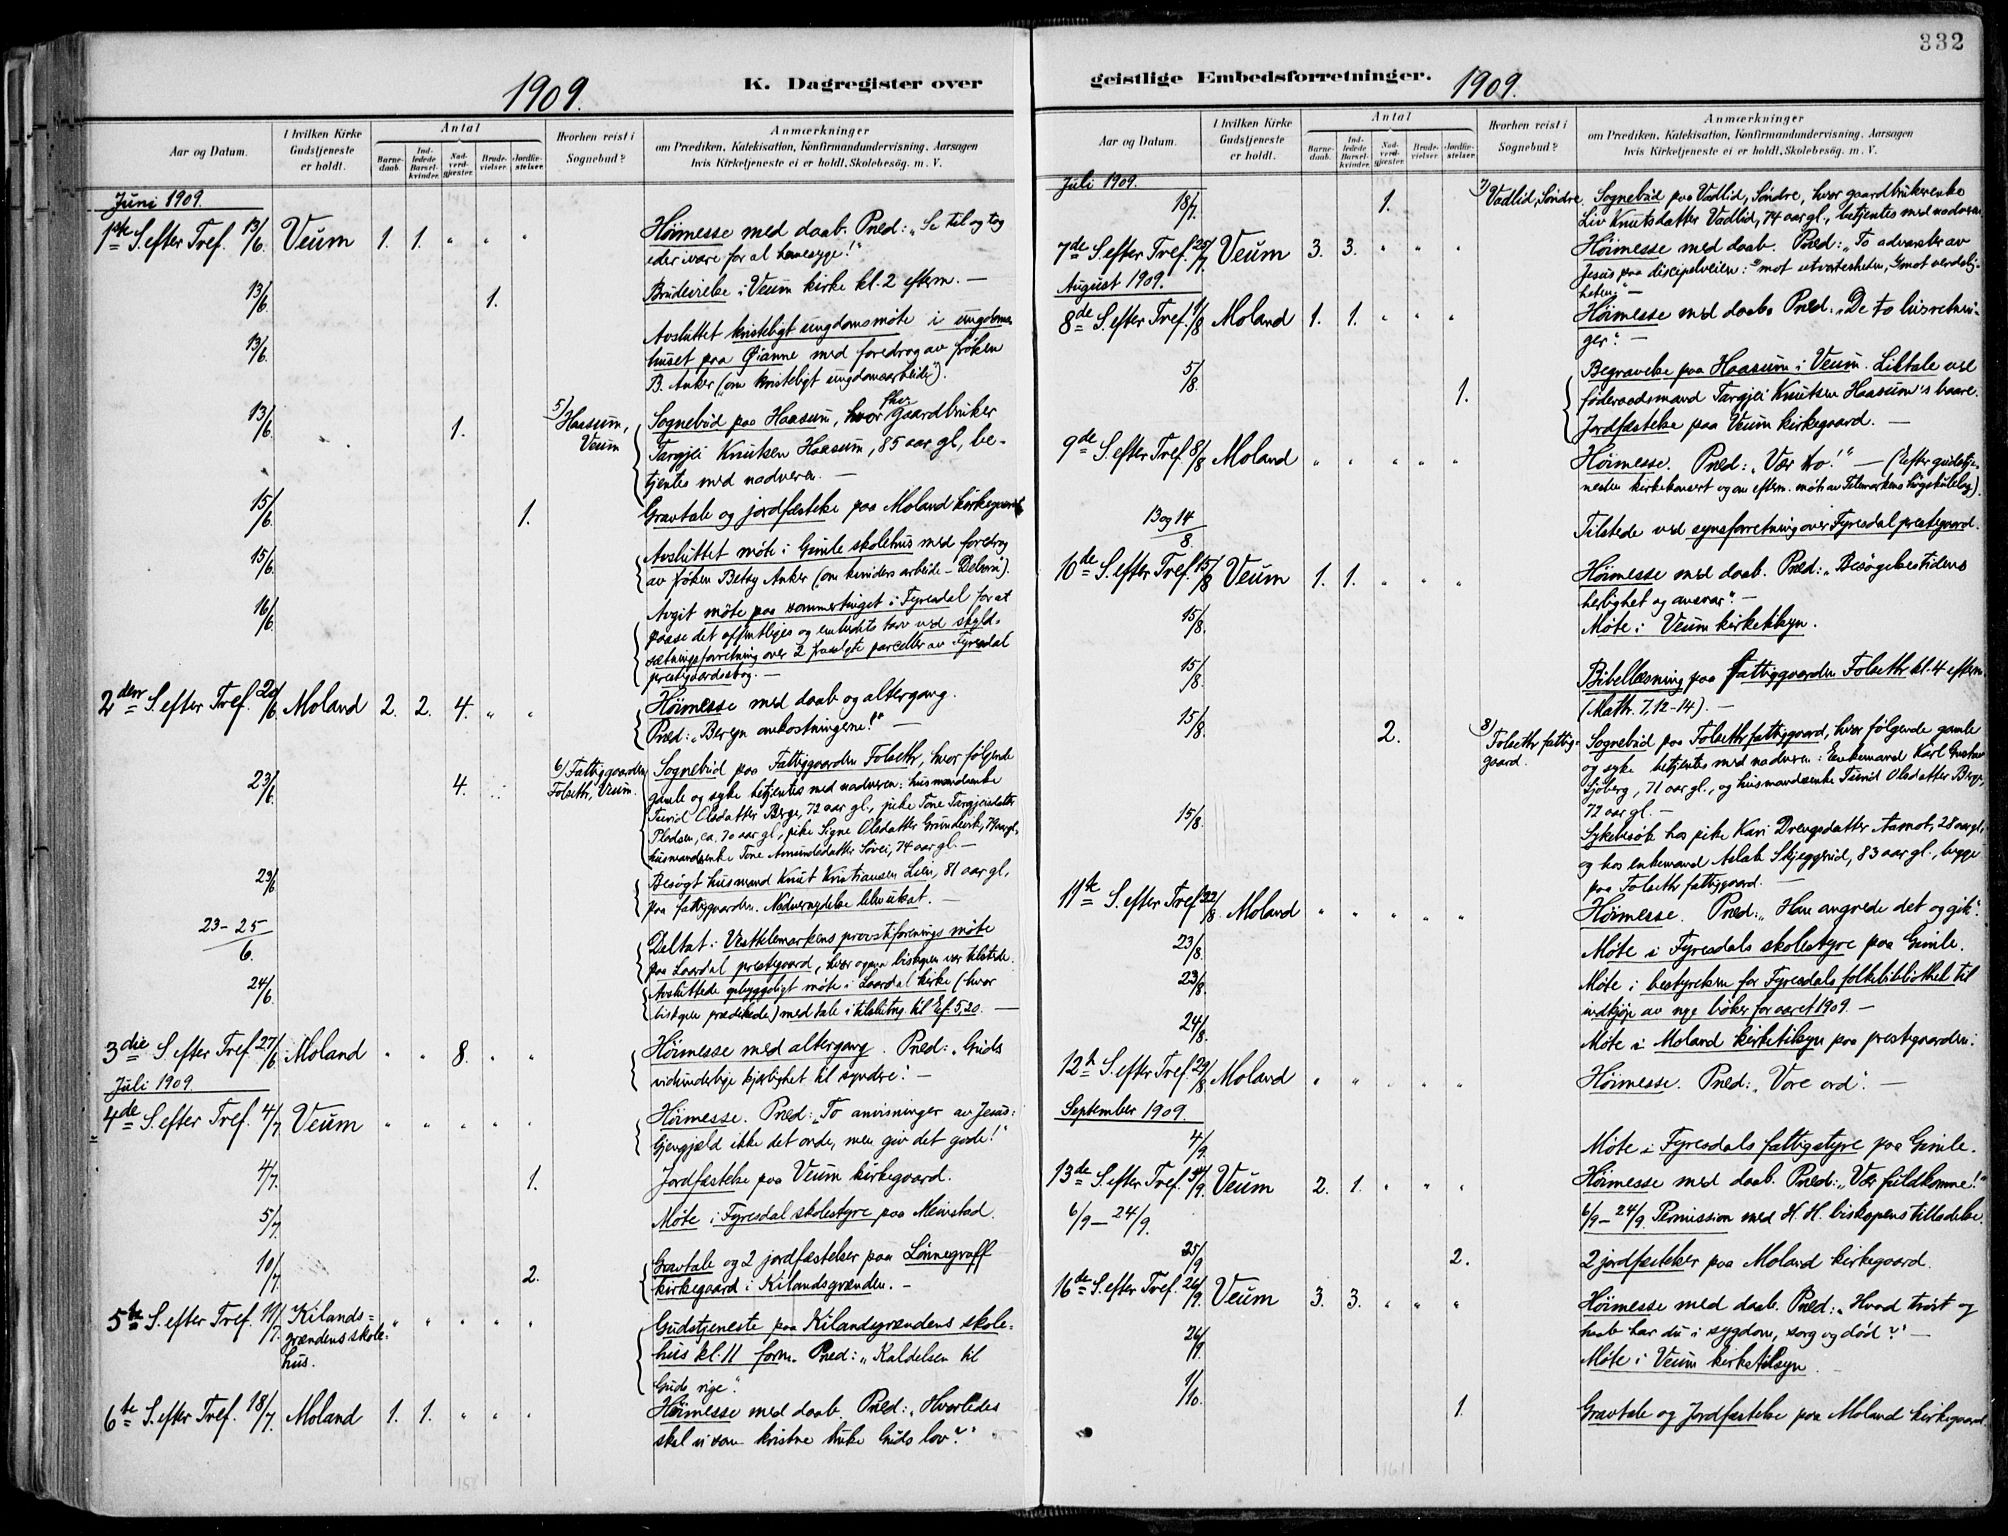 332
1909.
K. Dagregister over
Aar og Datum.
I hvilken Kirke
Gudstjeneste
er holdt.
Antal
Barne-
daab.
Ind-
ledede
Barsel-
kvinder.
Nad-
verd-
gjester.
Brude-
vielser.
Jordfæ-
stelser.
Hvorhen reist i
Sognebud?
Anmærkninger
om Prædiken, Katekisation, Konfirmandundervisning, Aarsagen
hvis Kirketjeneste ei er holdt, Skolebesøg, m. V.
Juni 1909.
1ste S. efter Tref. 13/6. Veum 1. 1. " " " Høimesse med daab. Præd: „Se til og tag
eder ivare for al havesyge!"
13/6. 1. Brudevielse i Veum kirke kl. 2 efterm. —
13/6. Avsluttet kristeligt ungdomsmøte i ungdoms-
huset paa Øianne med foredrag av frøken
B. Anker („om kristeligt ungdomsarbeide").
13/6. 1. 5) Haasum, Veum Sognebud paa Haasum, hvor fhv. Gaardbruker
Targjei Knutsen Haasum, 85 aar gl., be-
tjentes med nadveren. —
15/6. 1. Gravtale og jordfæstelse paa Moland kirkegaard
15/6. Avsluttet møte i Gimle skolehus med foredrag
av frøken Betzy Anker (om kvinders arbeide – Debora).
16/6. Avgit møte paa sommertinget i Fyresdal for at
paase det offentliges og embedets tarv ved skyld-
sætningsforretning over 2 frasolgte parceller av Fyresdal
prestegaardsskog. —
2den S. efter Tref. 20/6. Moland 2. 2. 4. " " Høimesse med daab og altergang.
Præd: „Beregn omkostningerne!" —
23/6. 4. 6) Fattiggaarden Folseth, Veum. Sognebud paa Fattiggaarden Folseth, hvor følgende
gamle og syke betjentes med nadveren: husmandsenke
Turid Olsdatter Berge, 72 aar gl., pike Tone Targjeisdatter
Pladsen, ca. 70 aar gl., pike Signe Olsdatter
husmandsenke Tone Amundsdatter 74 aar gl. —
23/6 Besøgt husmand Knut Kristiansen Lien, 81 aar gl.,
paa fattiggaarden. Nadvernydelse blev utsat. —
23–25/6. Deltat i Vesttelemarkens provstiforenings møte
paa Laardal prestegaard, hvor ogsaa biskopen var tilstede.
24/6. Avsluttede opbyggeligt møte i Laardal kirke (hvor
biskopen prædikede) med tale i tilslutng. til Ef. 5,20. —
3die S. efter Tref. 27/6. Moland " " 8. " " Høimesse med altergang. Præd: „Guds
vidunderlige kjærlighet til syndere". —
Juli 1909.
4de S. efter Tref. 4/7. Veum " " " " " Høimesse. Præd: „To anvisninger av Jesus:
Gjengjæld ikke det onde, men giv det gode!"
4/7. 1. Jordfæstelse paa Veum kirkegaard.
5/7. Møte i Fyresdal skolestyre paa Meinstad.
10/7. 2. Gravtale og 2 jordfæstelser paa Lønnegraff
kirkegaard i Kilandsgrænden. —
5te S. efter Tref. 11/7. Kilands-
grændens skole-
hus. " " " " " Gudstjeneste paa Kilandsgrændens skole-
hus kl. 11 form. Præd: „Kaldelsen til
Guds rige".
6te S. efter Tref. 18/7. Moland 1. 1. " " " Høimesse med daab. Præd: „Hvorledes
skal vi som kristne bruke Guds lov?"
geistlige Embedsforretninger.
1909.
Aar og Datum.
I hvilken Kirke
Gudstjeneste
er holdt.
Antal
Barne-
daab.
Ind-
ledede
Barsel-
kvinder.
Nad-
verd-
gjester.
Brude-
vielser.
Jordfæ-
stelser.
Hvorhen reist i
Sognebud?
Anmærkninger
om Prædiken, Katekisation, Konfirmandundervisning, Aarsagen
hvis Kirketjeneste ei er holdt, Skolebesøg, m. V.
Juli 1909.
18/7. 1. 7) Vadlid, Søndre. Sognebud paa Vadlid, Søndre, hvor gaardbrukerenke
Liv Knutsdatter Vadlid, 74 aar gl., betjentes med nadveren
7de S. efter Tref. 25/7 Veum 3. 3. " " " Høimesse med daab. Præd: „To advarsler av
Jesus paa discipelveien: mot utvortesheten, & mot verdslig-
heten." —
August 1909.
8de S. efter Tref. 1/8 Moland 1. 1. " " " Høimesse med daab. Præd: „De to livsretnin-
ger". —
5/8. 1. Begravelse paa Haasum i Veum. Liktale ved
føderaadsmand Targjei Knutsen Haasum's baare.
Jordfæstelse paa Veum kirkegaard. —
9de S. efter Tref. 8/8 Moland " " " " " Høimesse. Præd: „Vær tro!" — (Efter gudstje-
nesten kirkekonsert og om efterm. møte av Telemarkens høgskulelag).
13 og 14/8. Tilstede ved synsforretning over Fyresdal prestegaard.
10de S. efter Tref. 15/8 Veum 1. 1. " " " Høimesse med daab. Præd: „Besøgelsestidens
herlighet og ansvar". —
15/8. Møte i Veum kirketilsyn.
15/8. Bibellæsning paa fattiggaarden Folseth kl. 4 efterm.
(Math. 7, 12-14). —
15/8. 2. 8) Folseth fattig-
gaard. Sognebud paa Folseth fattiggaard, hvor følgende gamle
og syke betjentes med nadveren: Enkemand Karl Gustav
Sjøberg, 71 aar gl., og husmandsenke Turid Olsdatter Berge,
72 aar gl. —
15/8. Sykebesøk hos pike Kari Drengsdatter Aamot, 28 aar gl.,
og hos enkemand Aslak Skjeggerud, 83 aar gl., begge
paa Folseth fattiggaard. —
11te S. efter Tref. 22/8. Moland " " " " " Høimesse. Præd: „Han angrede det og gik".
23/8. Møte i Fyresdals skolestyre paa Gimle.
23/8. Møte i bestyrelsen for Fyresdals folkebibliothek til
indkjøp av nye bøker for aaret 1909. —
24/8. Møte i Moland kirketilsyn paa prestgaarden.
12te S. efter Tref. 29/8 Moland " " " " " Høimesse. Præd: „Vore ord". —
September 1909.
4/9. Møte i Fyresdals fattigstyre paa Gimle.
13de S. efter Tref. 5/9. Veum 2. 1. " " " Høimesse med daab. Præd: „Vær fuldkomne!"
6/9 – 24/9. 6/9 – 24/9. Permission med H. H. biskopens tilladelse.
25/9 2. 2 jordfæstelser paa Moland kirkegaard.
16de S. efter Tref. 26/9. Veum 3. 3. " " " Høimesse med daab. Præd: „Hvad trøst og
haab har du i sygdom, sorg og død?" —
26/9. Møte i Veum kirketilsyn.
1/10. 1. Gravtale og Jordfæstelse paa Moland kirkegaard.